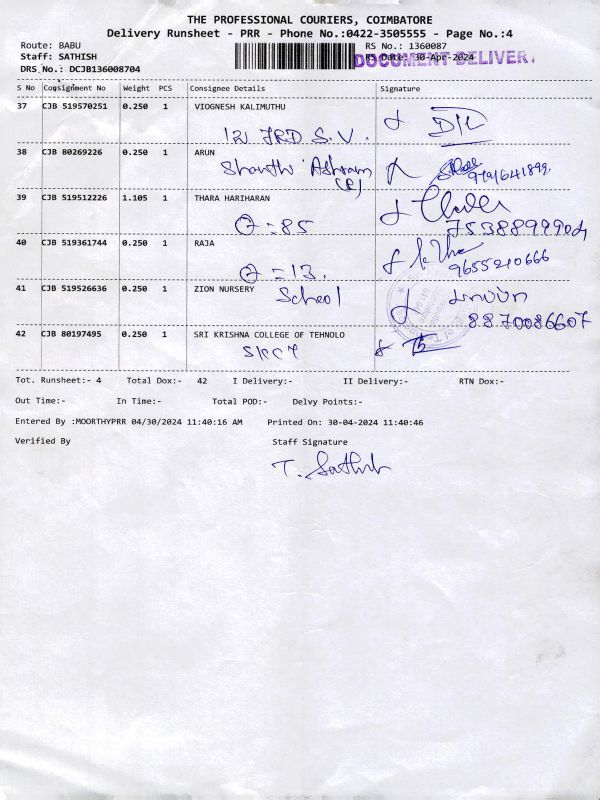 THE PROFESSIONAL COURIERS, COIMBATORE
Delivery Runsheet - PRR - Phone No.:0422-3505555 - Page No.:4
Route: BABU
RS No.: 1360087
Staff: SATHISH
RS Date: 30-Apr-2024
DOCUMENT DELIVERY
DRS No.: DCJB136008704
S No Consignment No Weight PCS Consignee Details Signature
37 CJB 519570251 0.250 1 VIOGNESH KALIMUTHU
12 JRD S.V.
38 CJB 80269226 0.250 1 ARUN
Shanthi Ashram
39 CJB 519512226 1.105 1 THARA HARIHARAN
=85
7538899904
40 CJB 519361744 0.250 1 RAJA
=13.
9655210666
41 CJB 519526636 0.250 1 ZION NURSERY School
8870086607
42 CJB 80197495 0.250 1 SRI KRISHNA COLLEGE OF TEHNOLO
SKCT
Tot. Runsheet:- 4 Total Dox:- 42 I Delivery:- II Delivery:- RTN Dox:-
Out Time:- In Time:- Total POD:- Delvy Points:-
Entered By :MOORTHYPRR 04/30/2024 11:40:16 AM Printed On: 30-04-2024 11:40:46
Verified By Staff Signature
T. Sathish